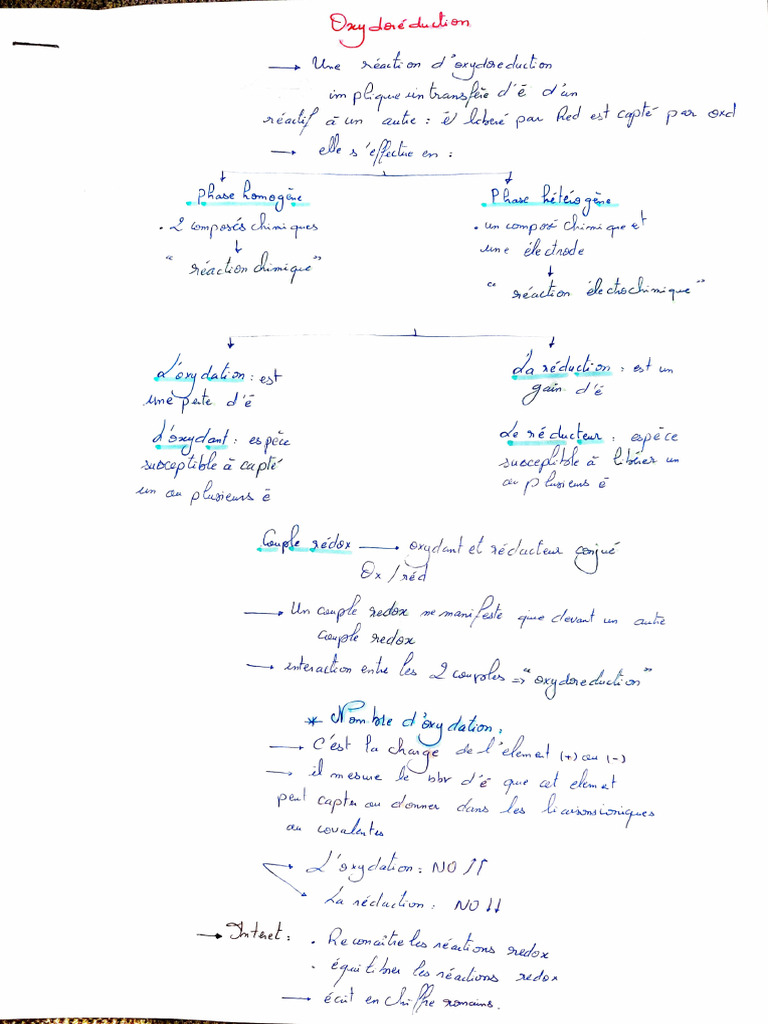 Oxydoréduction
→ Une réaction d'oxydoreduction
implique un transfère d'é d'un
réactif à un autre : é libéré par Red est capté par oxd
→ elle s'effectue en :
Phase homogène
. 2 composés chimiques
↓
"réaction chimique"
Phase hétérogène
. un composé chimique et
une électrode
↓
"réaction électrochimique"
L'oxydation : est
une perte d'é
L'oxydant : espèce
susceptible à capté
un ou plusieurs é
La réduction : est un
gain d'é
Le réducteur : espèce
susceptible à libérer un
ou plusieurs é
Couple rédox → oxydant et réducteur conjué
Ox / réd
→ Un couple redox ne manifeste que devant un autre
couple redox
→ interaction entre les 2 couples ⇒ "oxydoreduction"
* Nombre d'oxydation :
→ C'est la charge de l'élement (+) ou (-)
→ il mesure le nbr d'é que cet element
peut capter ou donner dans les liaisons ioniques
ou covalentes
→ L'oxydation : NO ↑↑
→ La réduction : NO ↓↓
→ Interet : . Reconaître les réactions redox
. équilibrer les réactions redox
→ écrit en chiffre romains.